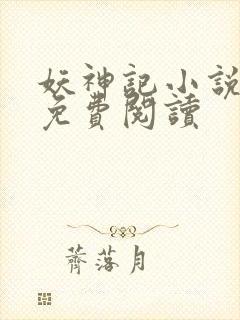 妖神記小說
免費閱讀
薺落月